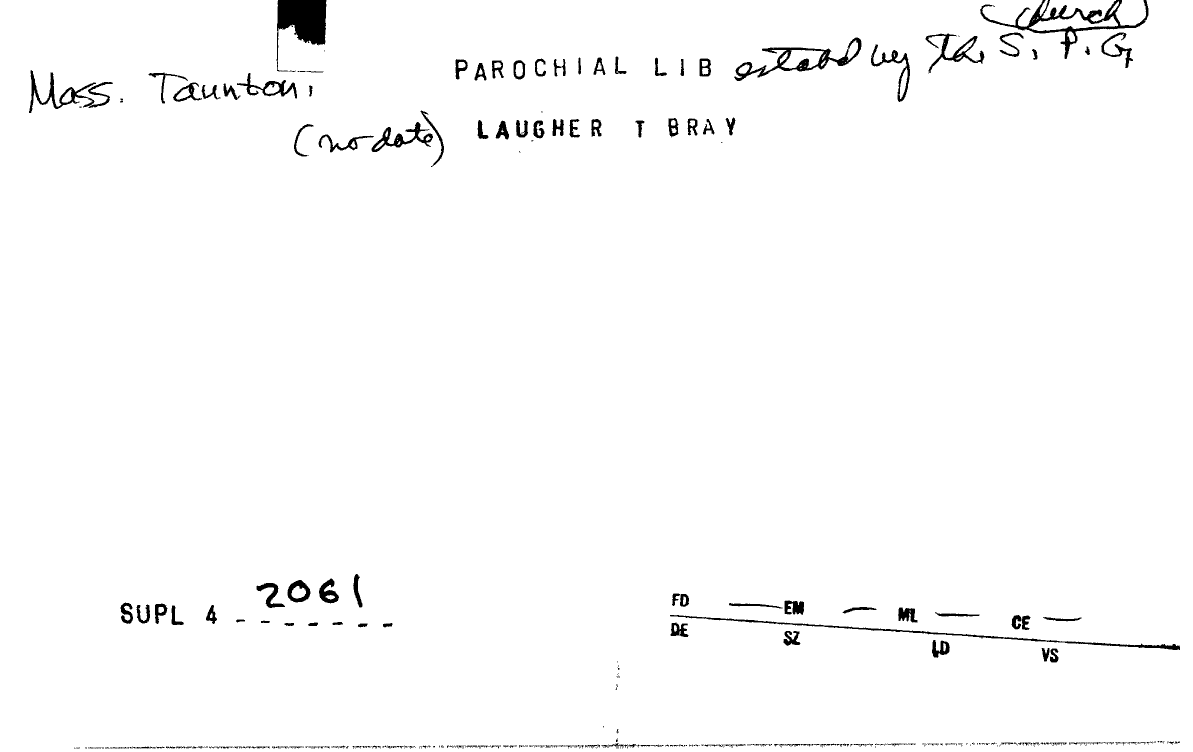 church
Mass. Taunton. PAROCHIAL LIB estabd by the S. P. G.
(no date) LAUGHER T BRAY
SUPL 4 2061
FD — EM — ML — CE —
DE SZ LD VS